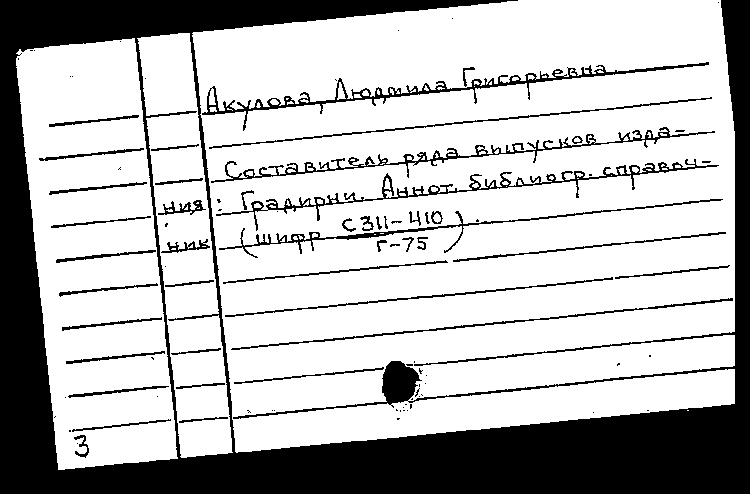 Акулова, Людмила Григорьевна.
Составитель ряда выпусков изда-
ния: Градирни. Аннот. библиогр. справоч-
ник (шифр С311-410 / Г-75).
3